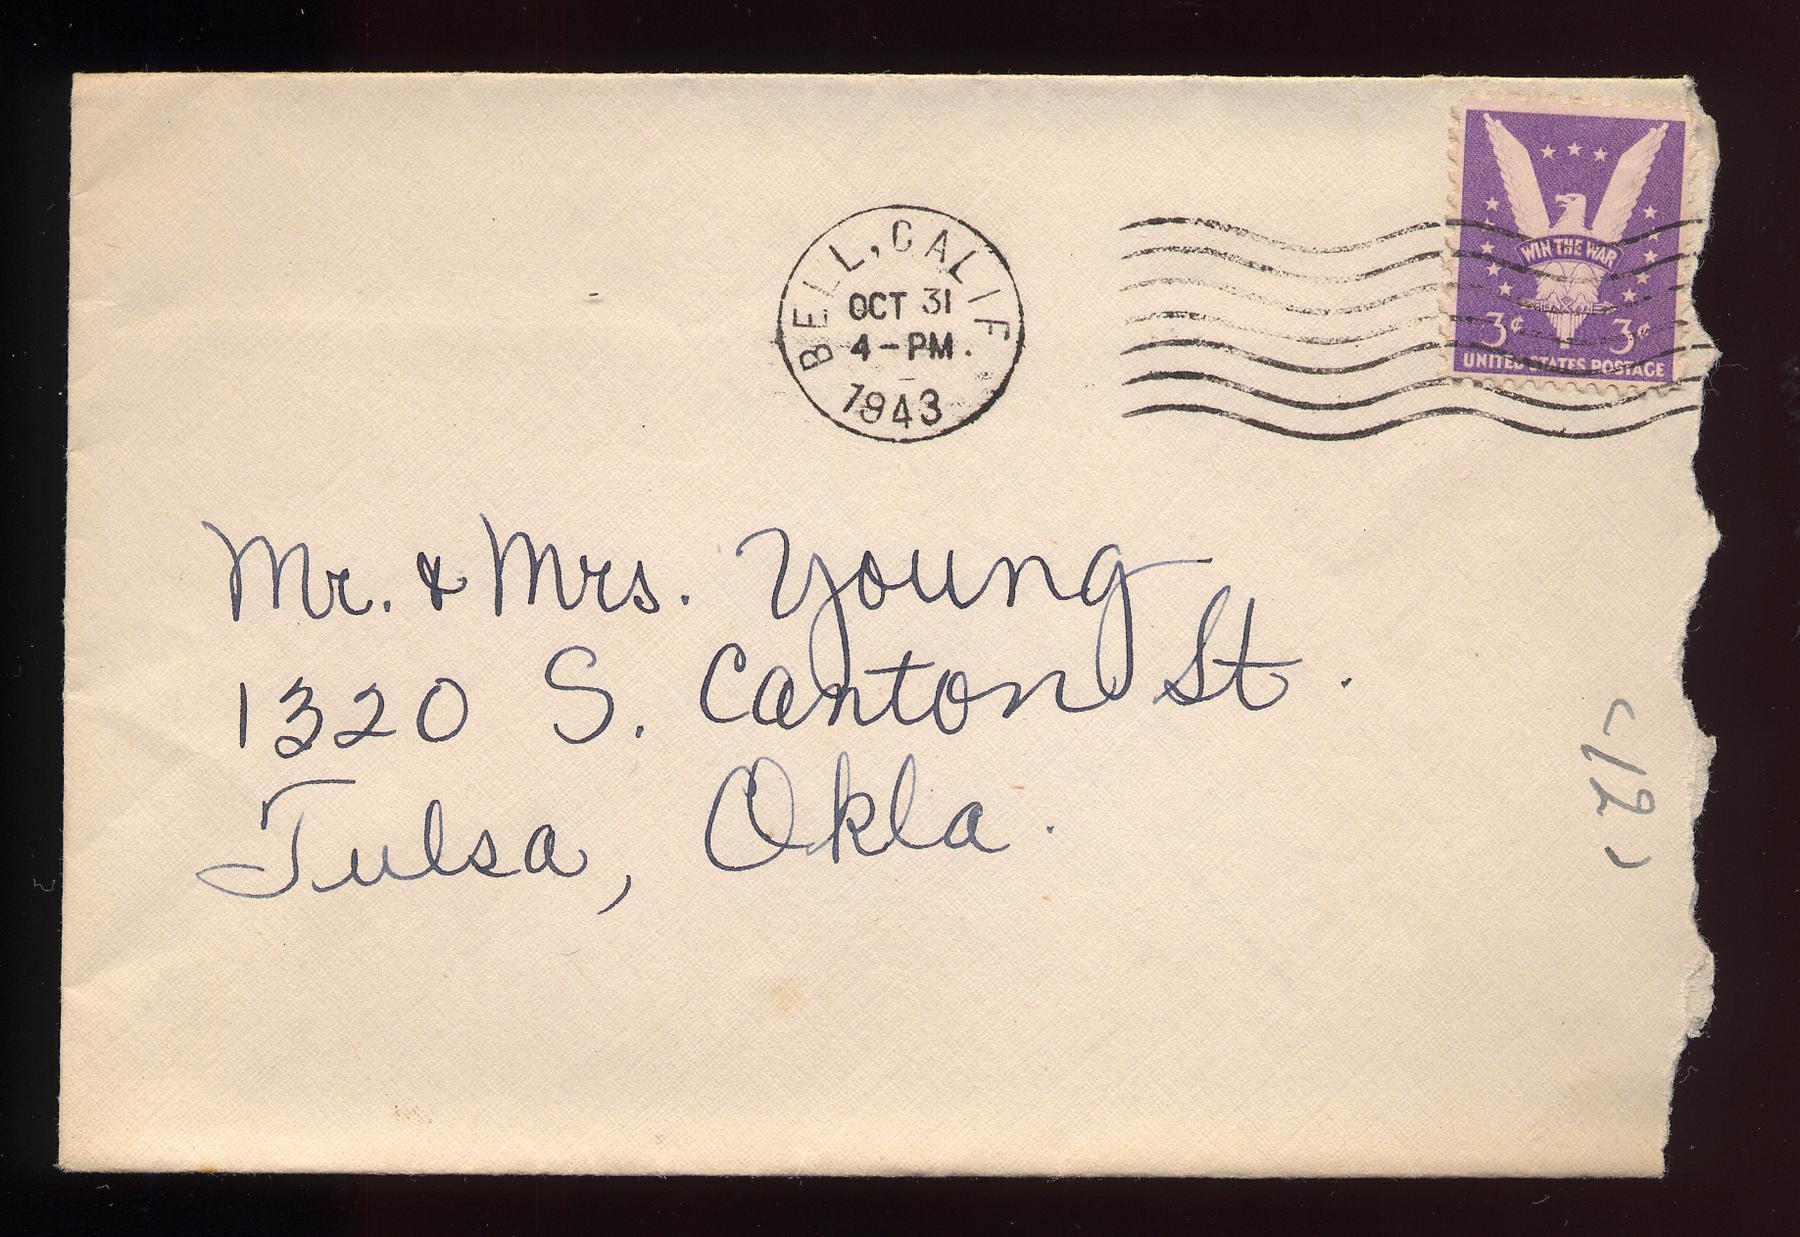 BELL, CALIF
OCT 31
4-PM.
1943
WIN THE WAR
3¢ 3¢
UNITED STATES POSTAGE
Mr. & Mrs. Young
1320 S. Canton St.
Tulsa, Okla.